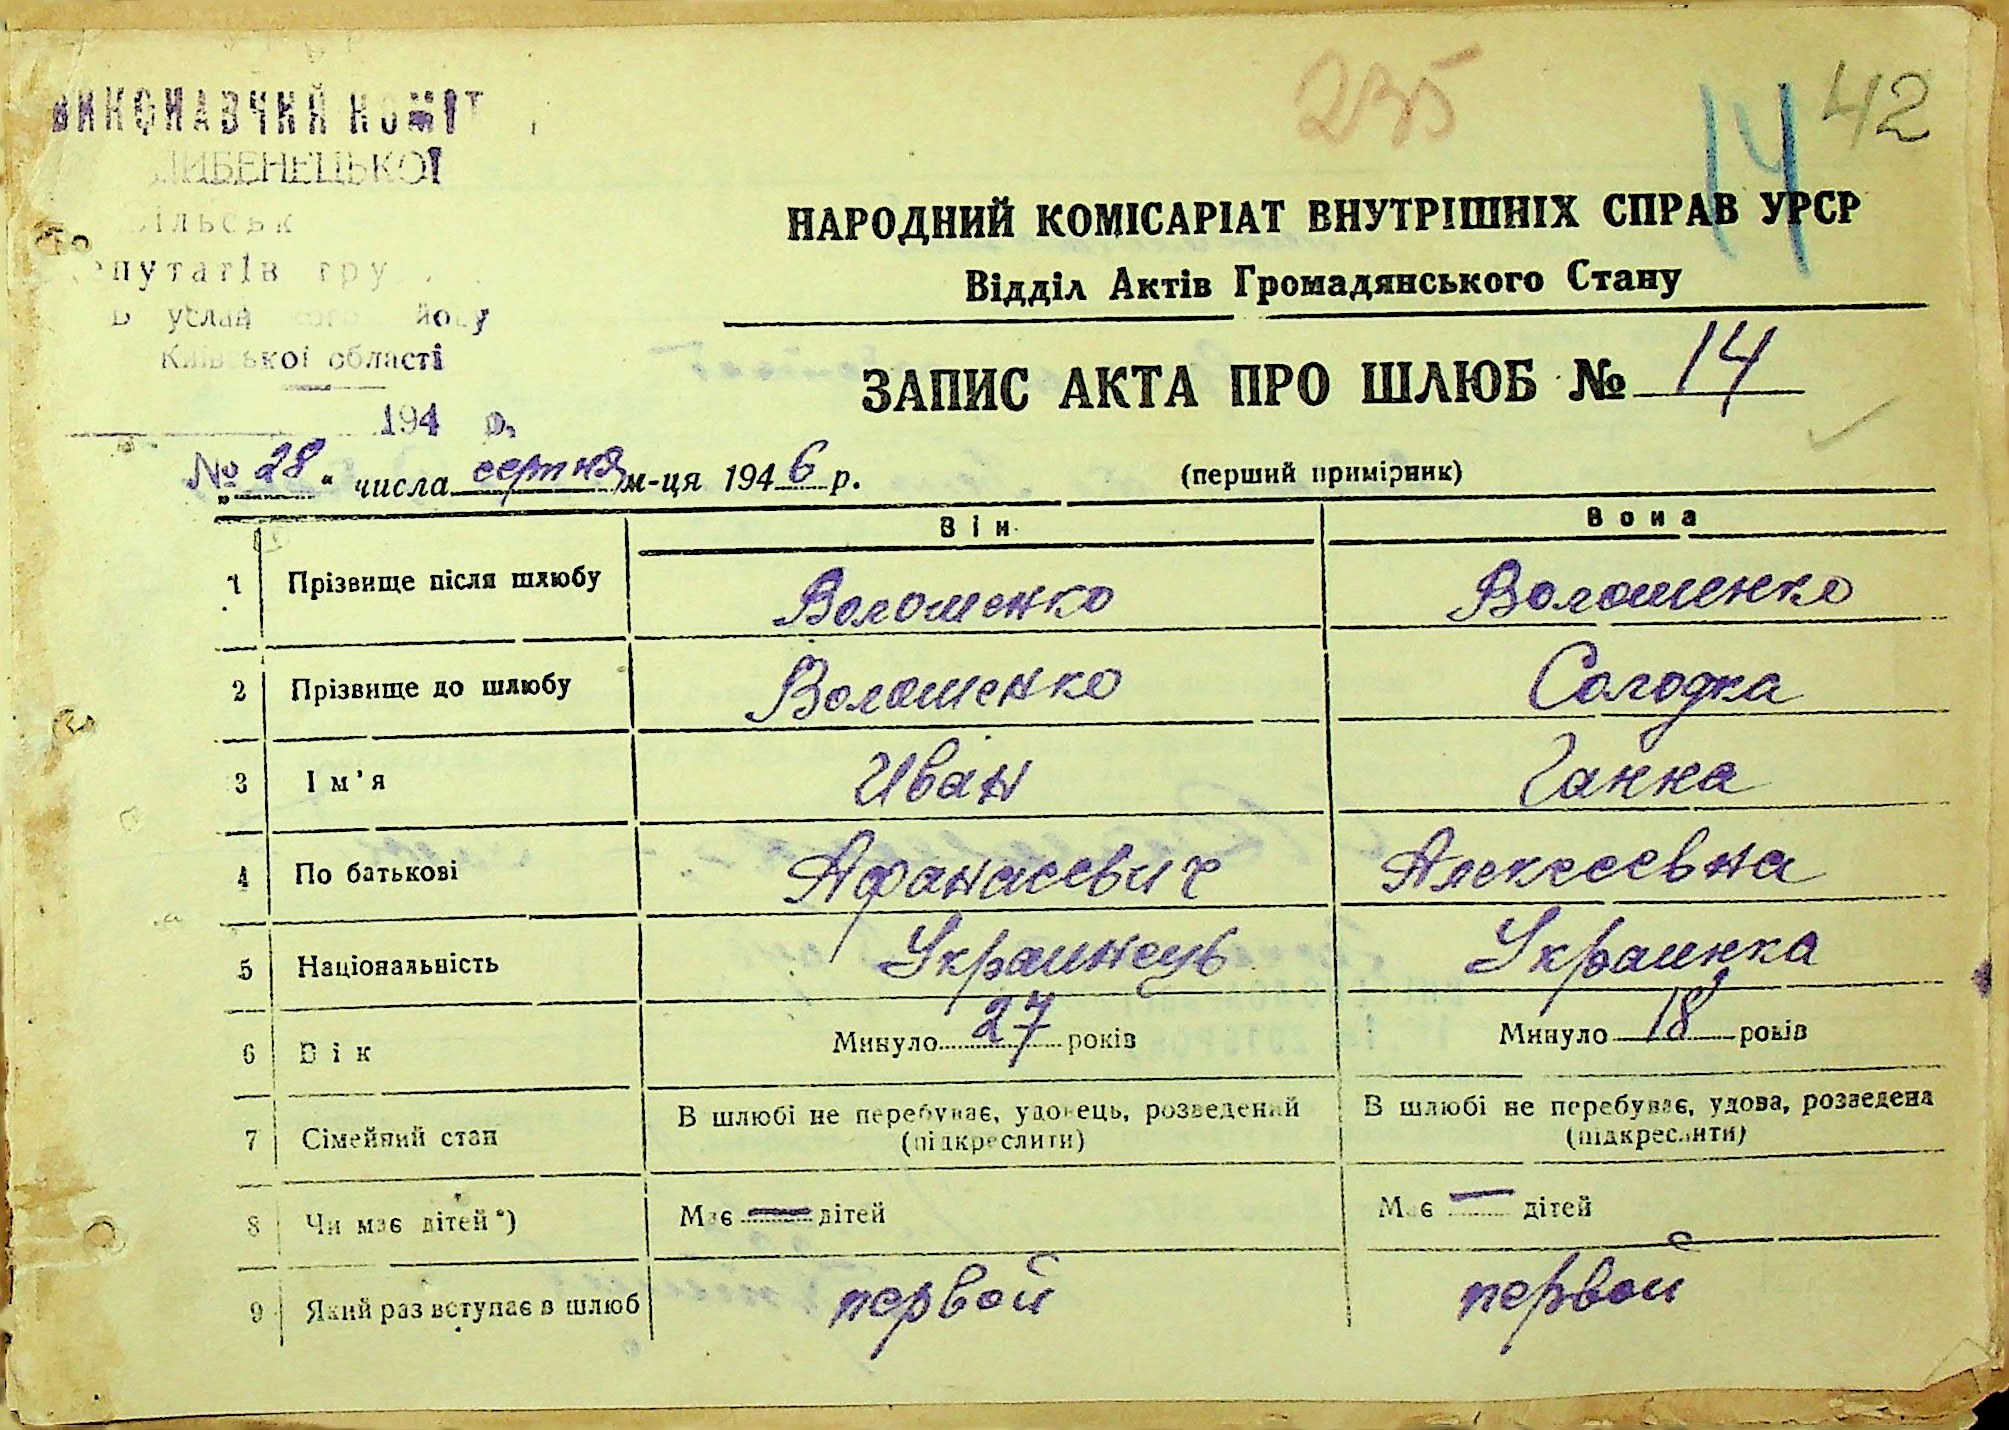 235
14
42
ВИКОНАВЧИЙ КОМІТ
ЛИБЕНЕЦЬКОЇ
ільськ
епутатів тру
Київської області
194 р.
НАРОДНИЙ КОМІСАРІАТ ВНУТРІШНІХ СПРАВ УРСР
Відділ Актів Громадянського Стану
ЗАПИС АКТА ПРО ШЛЮБ № 14
№ „28“ числа серпня м-ця 1946 р.
(перший примірник)
Він Вона
1 Прізвище після шлюбу Волошенко Волошенко
2 Прізвище до шлюбу Волошенко Солодка
3 Ім’я Иван Ганна
4 По батькові Афанасевич Алексеевна
5 Національність Украинець Украинка
6 Вік Минуло 27 років Минуло 18 років
7 Сімейний стан В шлюбі не перебуває, удовець, розведений (підкреслити) В шлюбі не перебуває, удова, розведена (підкреслити)
8 Чи має дітей*) Має — дітей Має — дітей
9 Який раз вступає в шлюб первой первой